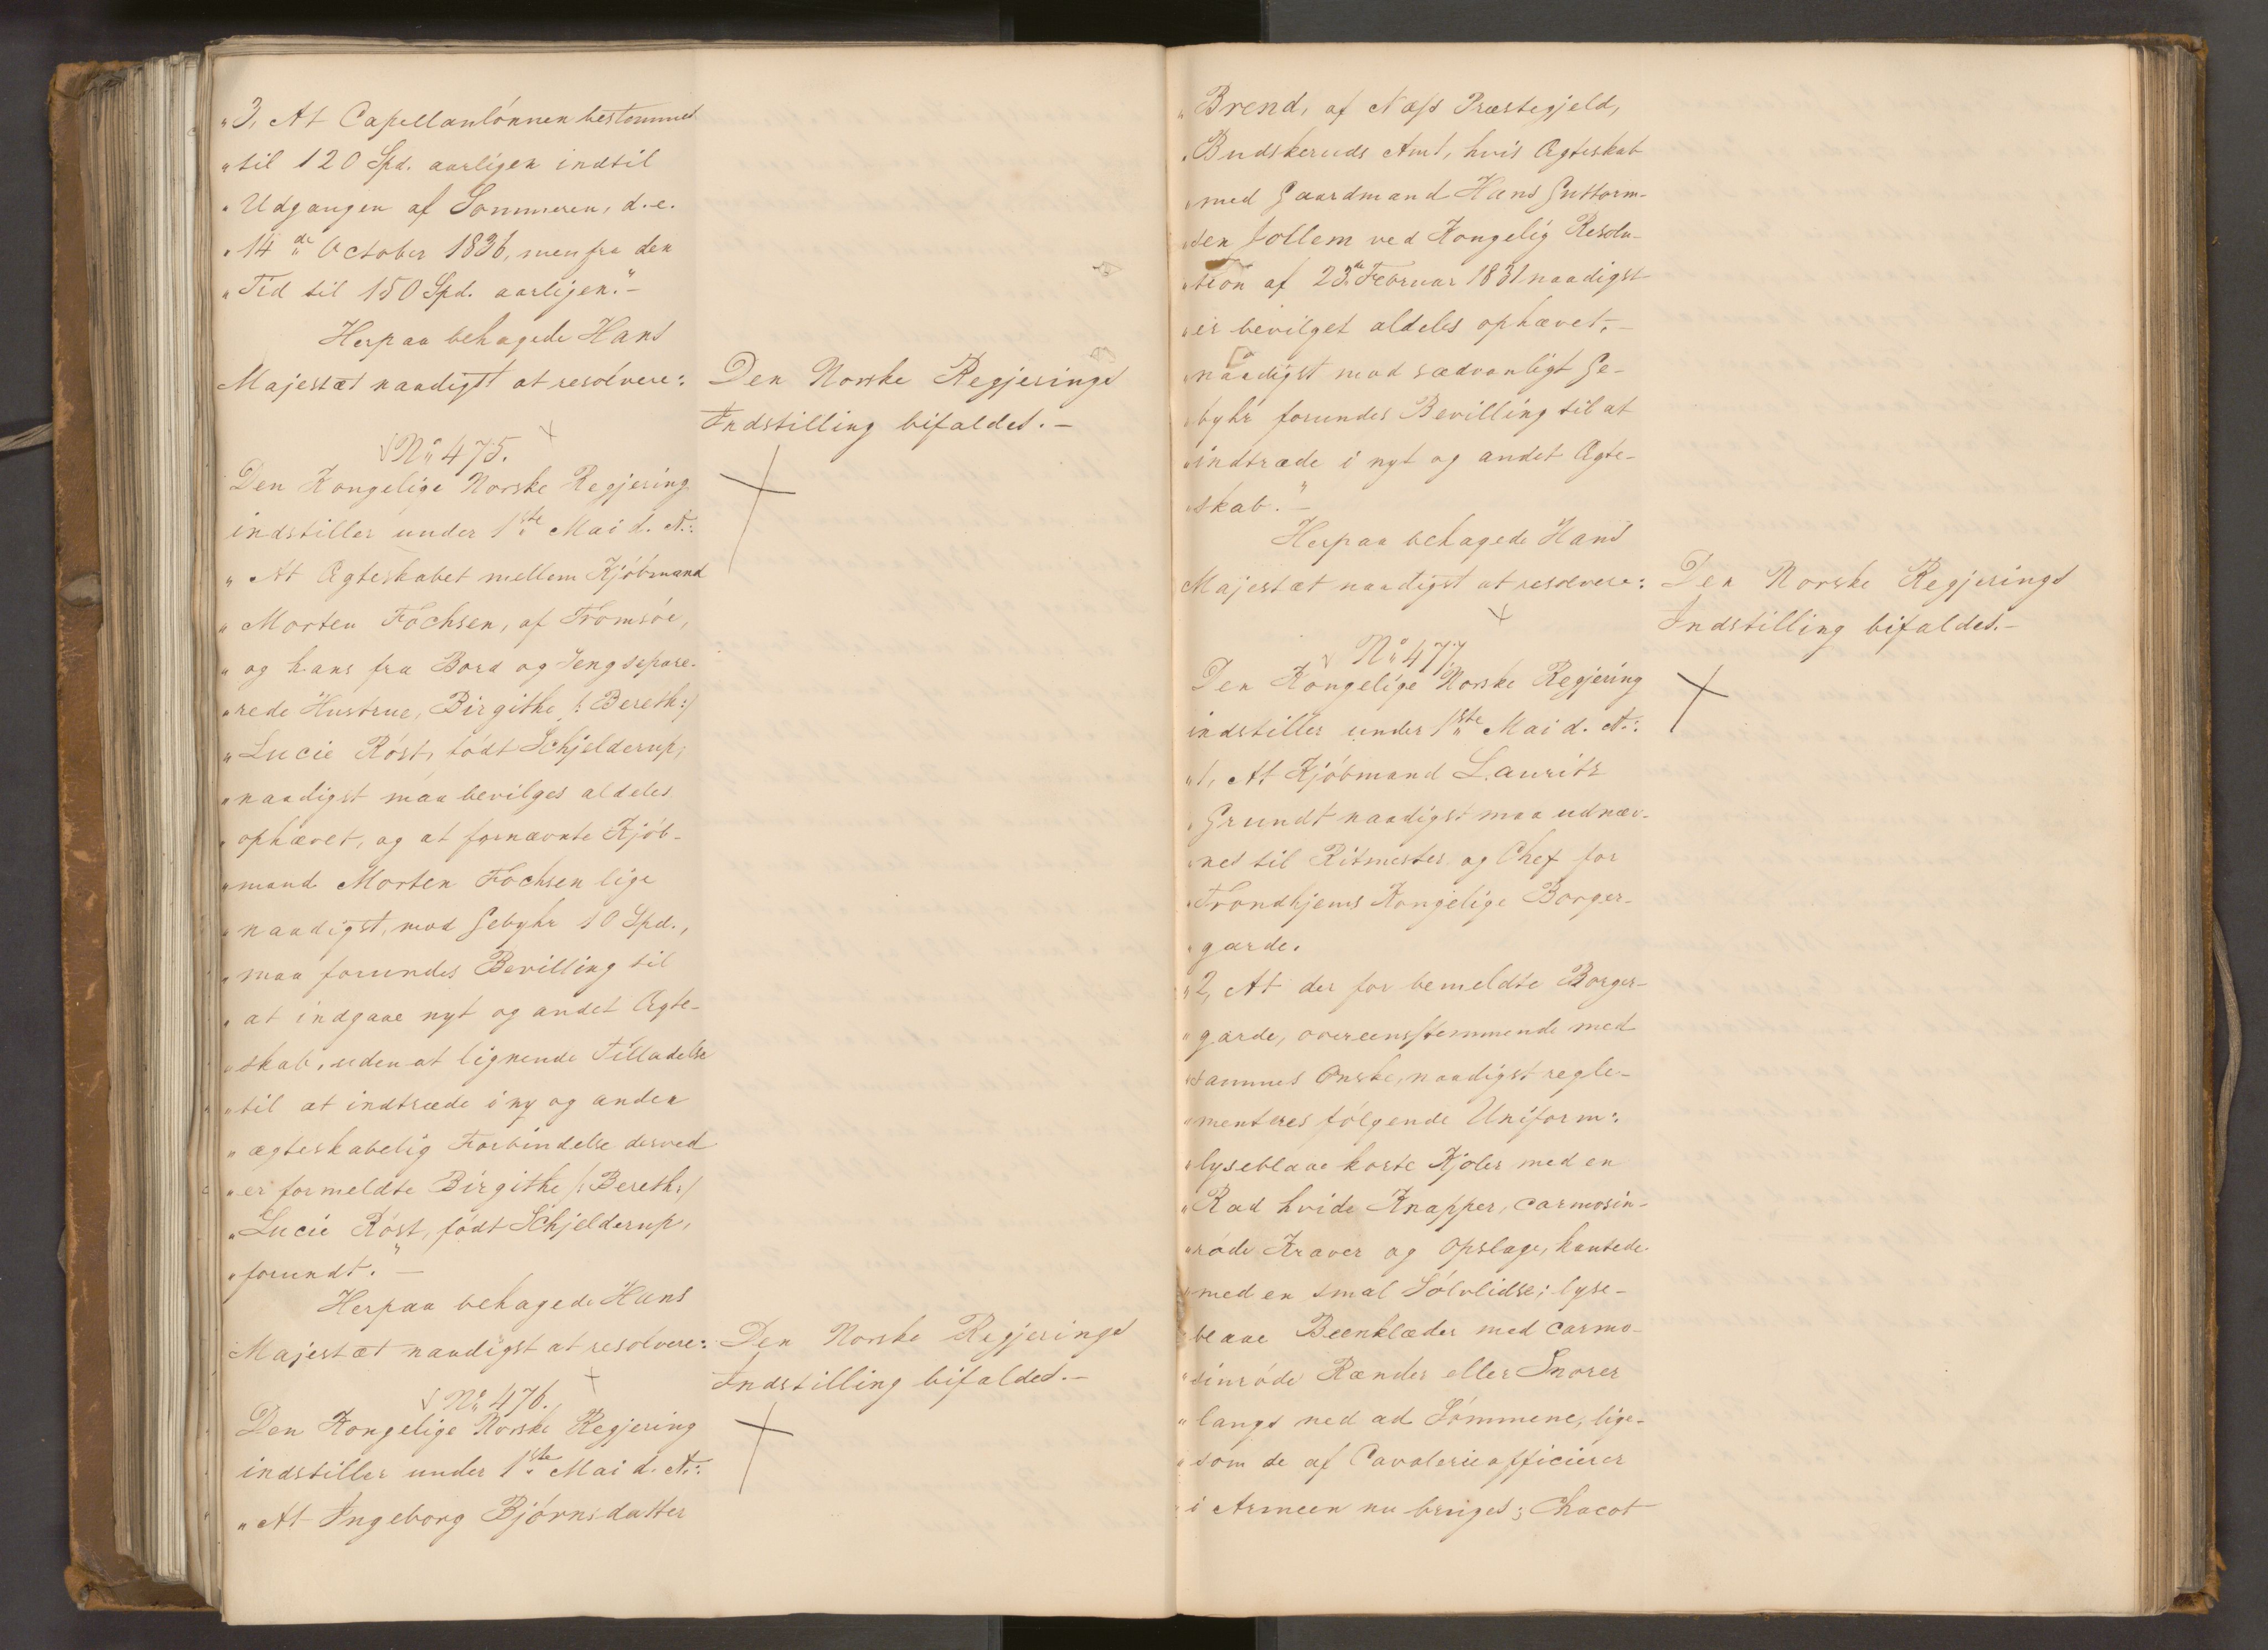 "3, At Capellanlönnen bestemmes
"til 120 Spd. aarligen indtil
"Udgangen af Sommeren, d.e.
"14de October 1836, men fra den
"Tid til 150 Spd. aarligen."-
Herpaa behagede Hans
Majestæt naadigst at resolvere:
Den Norske Regjerings
Indstilling bifaldes.-
No 475.
Den Kongelige Norske Regjering
indstiller under 1ste Mai d. A.:
"At Ægteskabet mellem Kjöbmand
"Morten Fochsen, af Tromsöe,
"og hans fra Bord og Seng separe-
"rede Hustrue, Birgithe /: Bereth:/
"Lucie Röst, födt Schjelderup,
"naadigst maa bevilges aldeles
"ophævet, og at fornævnte Kjöb-
"mand Morten Fochsen lige
"naadigst, mod Gebyhr 10 Spd.,
"maa forundes Bevilling til
"at indgaae nyt og andet Ægte-
"skab, uden at lignende Tilladelse
"til at indtræde i ny og anden
"ægteskabelig Forbindelse derved
"er formeldte Birgithe /: Bereth:/
"Lucie Röst, födt Schjelderup,
"forundt."-
Herpaa behagede Hans
Majestæt naadigst at resolvere:
Den Norske Regjerings
Indstilling bifaldes.-
No 476.
Den Kongelige Norske Regjering
indstiller under 1ste Mai d. A.:
"At Ingeborg Björnsdatter
"Brend, af Næss Præstegjeld,
"Budskeruds Amt, hvis Ægteskab
"med Gaardmand Hans Guttorm-
"sen Jollem ved Kongelig Resolu-
"tion af 23de Februar 1831 naadigst
"er bevilget aldeles ophævet,-
"naadigst mod sædvanligt Ge-
"byhr forundes Bevilling til at
"indtræde i nyt og andet Ægte-
"skab."-
Herpaa behagede Hans
Majestæt naadigst at resolvere:
Den Norske Regjerings
Indstilling bifaldes.-
No 477
Den Kongelige Norske Regjering
indstiller under 1ste Mai d. A.:
"1, At Kjöbmand Lauritz
"Grundt naadigst maa udnæv-
"nes til Ritmester og Chef for
"Trondhjems Kongelige Borger-
"garde.
"2, At der for bemeldte Borger-
"garde, overeensstemmende med
"sammes Ønske, naadigst regle-
"menteres fölgende Uniform:
"lyseblaae korte Kjoler med en
"Rad hvide Knapper, carmosin-
"röde Kraver og Opslage, kantede
"med en smal Sölvlidse; lyse-
"blaae Beenklæder med carmo-
"sinröde Rænder eller Snorer
"langs ned ad Sömmene, lige-
"som de af Cavalerieofficierer
"i Armeen nu bruges; Chacot